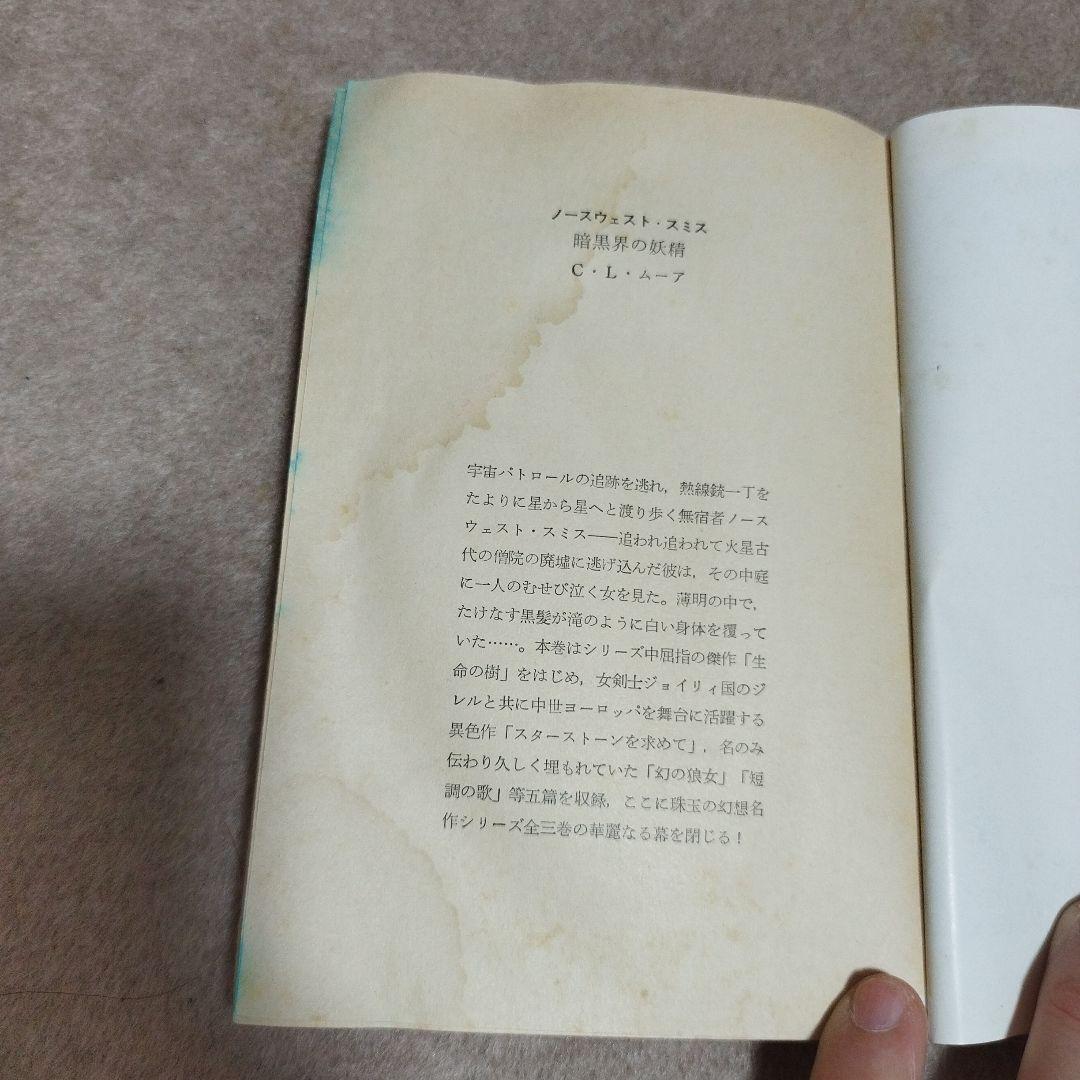 ノースウェスト・スミス
暗黒界の妖精
C・L・ムーア
宇宙パトロールの追跡を逃れ，熱線銃一丁を
たよりに星から星へと渡り歩く無宿者ノース
ウェスト・スミス――追われ追われて火星古
代の僧院の廃墟に逃げ込んだ彼は，その中庭
に一人のむせび泣く女を見た。薄明の中で，
たけなす黒髪が滝のように白い身体を覆って
いた……。本巻はシリーズ中屈指の傑作「生
命の樹」をはじめ，女剣士ジョイリィ国のジ
レルと共に中世ヨーロッパを舞台に活躍する
異色作「スターストーンを求めて」，名のみ
伝わり久しく埋もれていた「幻の狼女」「短
調の歌」等五篇を収録，ここに珠玉の幻想名
作シリーズ全三巻の華麗なる幕を閉じる！